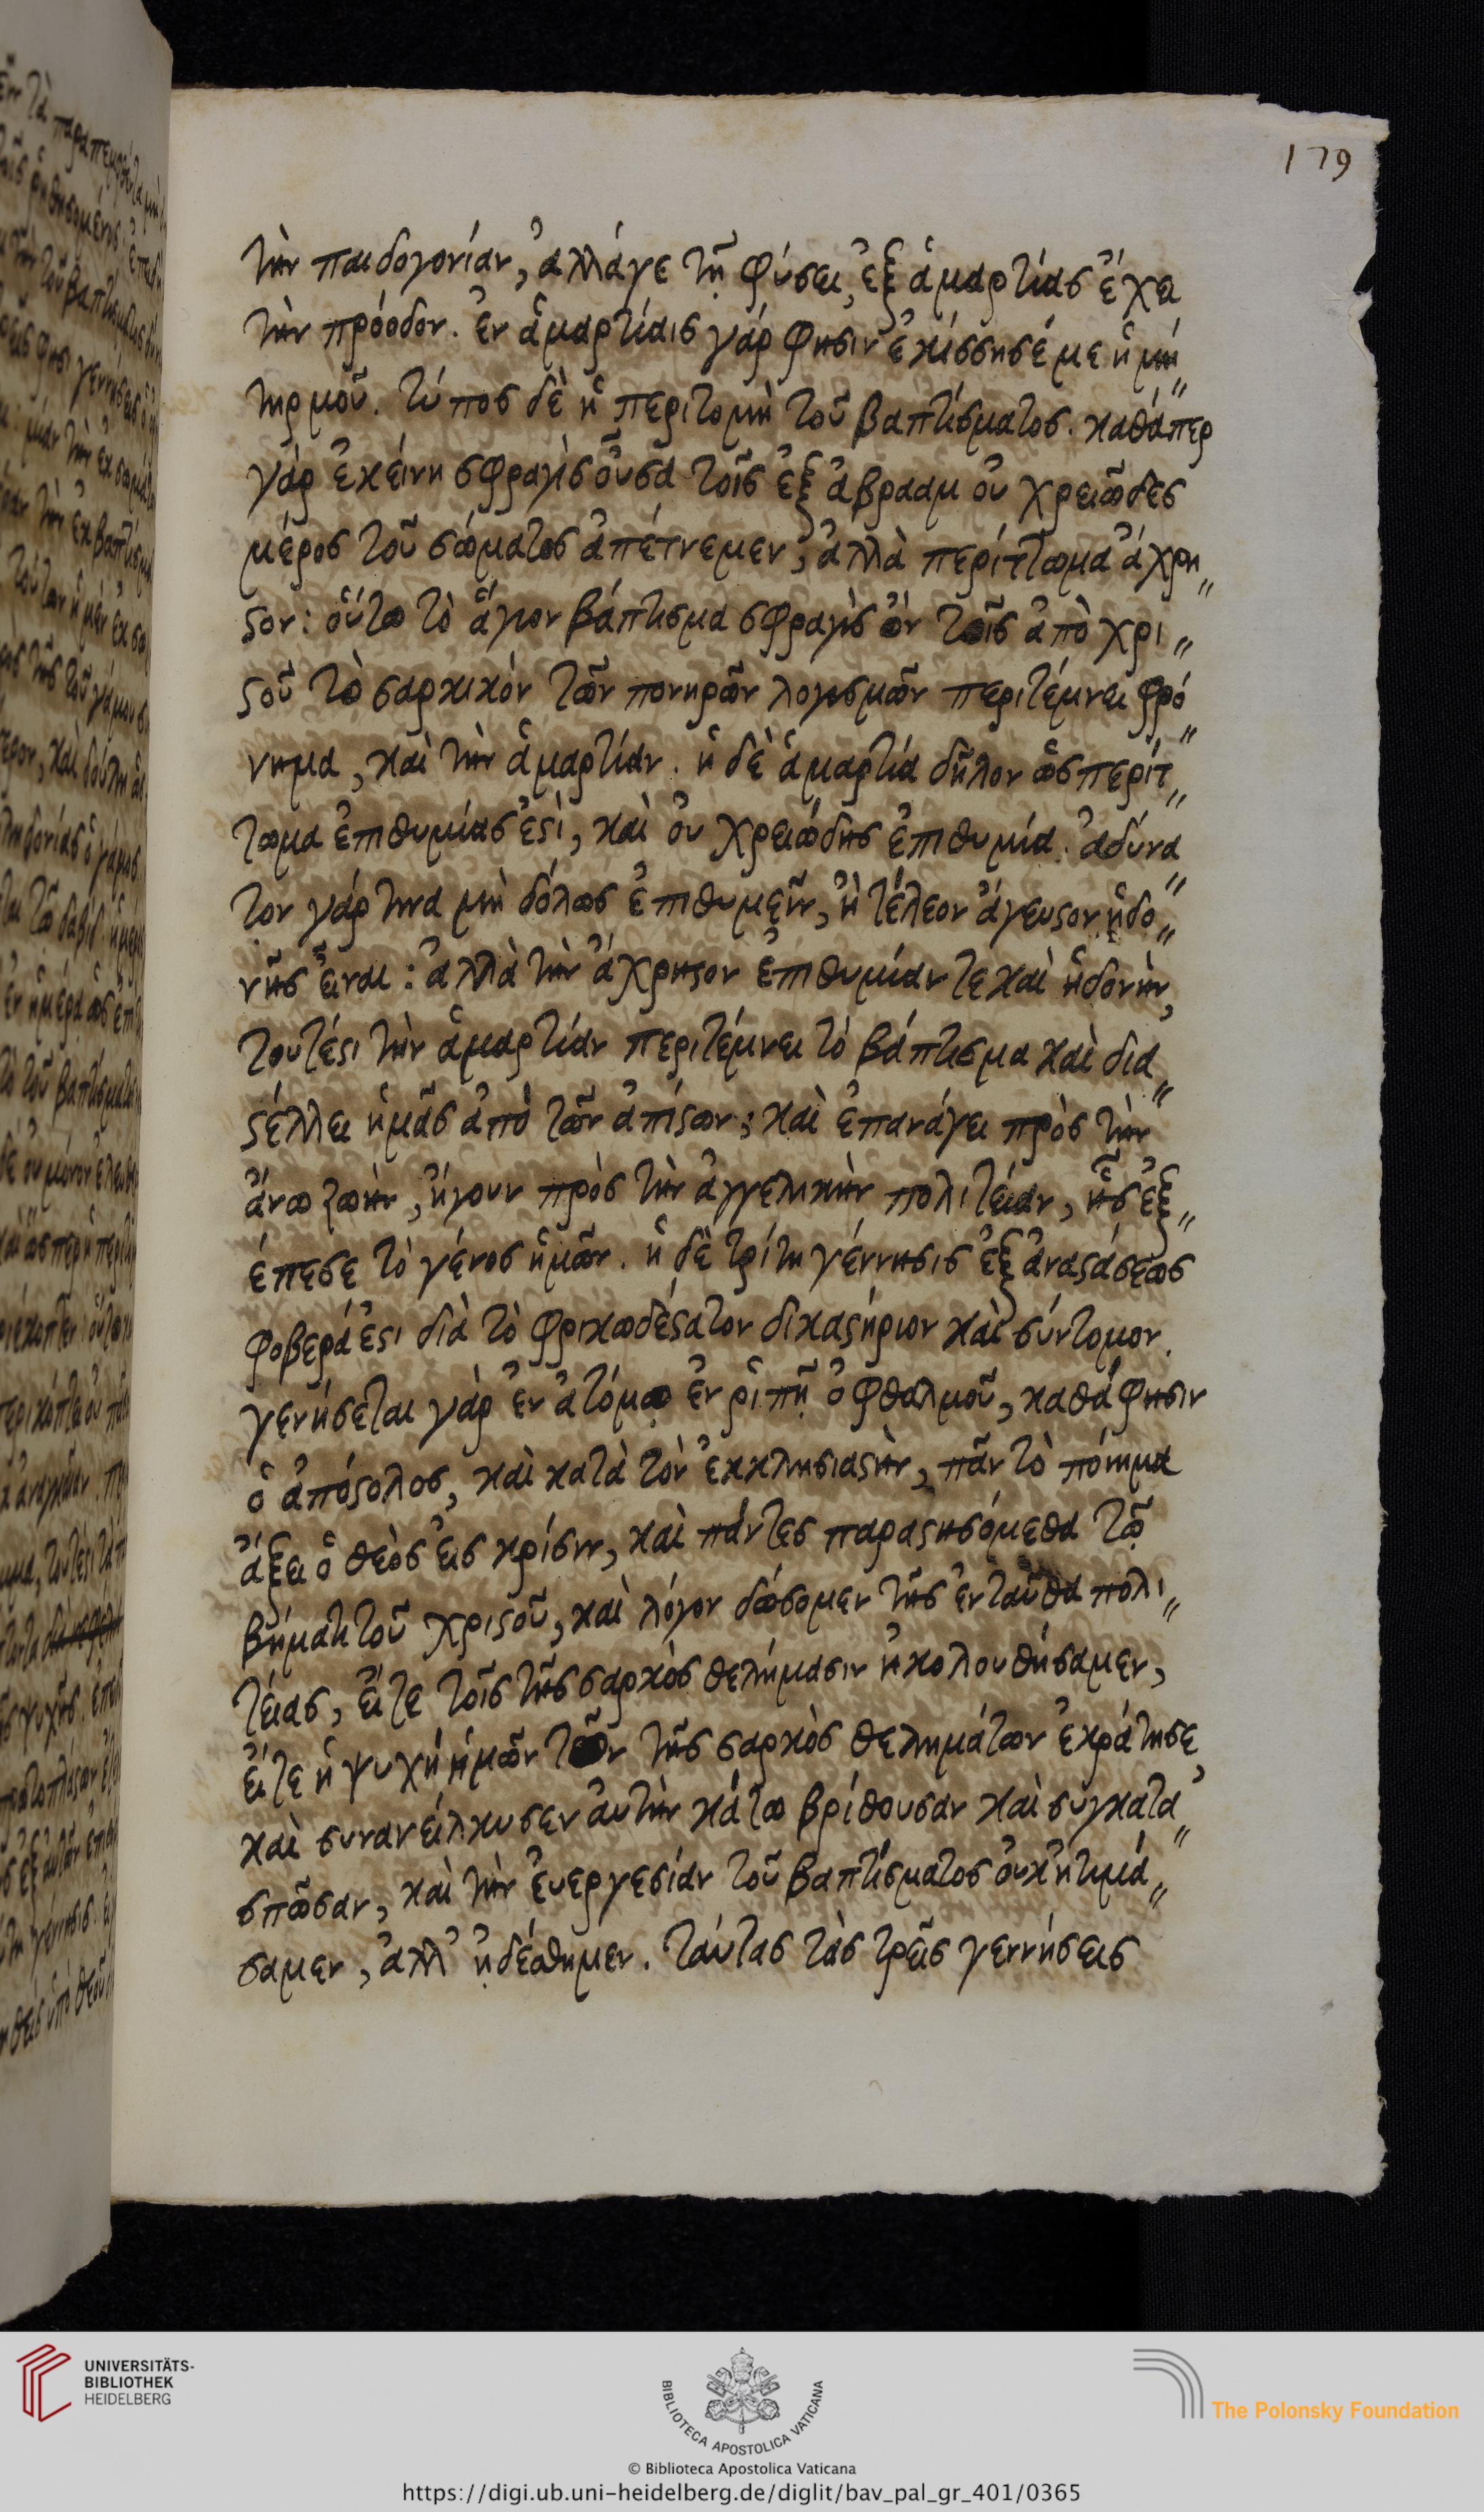 179
τὴν παιδογονίαν, ἀλλάγε τῇ φύσει, ἐξ ἁμαρτίας ἔχει
τὴν πρόοδον. ἐν ἁμαρτίαις γάρ φησιν ἐκίσσησέ με ἡ μή„
τηρ μοῦ. τύπος δὲ ἡ περιτομὴ τοῦ βαπτίσματος. καθάπερ
γὰρ ἐκείνη σφραγὶς οὖσα τοῖς ἐξ ἀβραὰμ οὐ χρειῶδες
μέρος τοῦ σώματος ἀπέτνεμεν, ἀλλὰ περίττωμα ἄχρη„
ϛον: οὕτω τὸ ἅγιον βάπτισμα σφραγὶς ὂν τοῖς ἀπὸ χρι„
ϛοῦ τὸ σαρκικὸν τῶν πονηρῶν λογισμῶν περιτέμνει φρό„
νημα, καὶ τὴν ἁμαρτίαν. ἡ δὲ ἁμαρτία δῆλον ὡς περίτ„
τωμα ἐπιθυμίας ἐϛὶ, καὶ οὐ χρειώδης ἐπιθυμία. ἀδύνα„
τον γάρ τινα μὴ δόλως ἐπιθυμεῖν, ἢ τέλεον ἄγευϛον ἡδο„
νῆς εἶναι: ἀλλὰ τὴν ἄχρηϛον ἐπιθυμίαν τε καὶ ἡδονὴν,
τουτέϛι τὴν ἁμαρτίαν περιτέμνει τὸ βάπτισμα καὶ δια„
ϛέλλει ἡμᾶς ἀπὸ τῶν ἀπίϛων; καὶ ἐπανάγει πρὸς τὴν
ἄνω ζωὴν, ἤγουν πρὸς τὴν ἀγγελικὴν πολιτείαν, ἧς ἐξ„
έπεσε τὸ γένος ἡμῶν. ἡ δὲ τρίτη γέννησις ἐξ ἀναϛάσεως
φοβερά ἐϛι διὰ τὸ φρικωδέϛατον δικαϛήριον καὶ σύντομον.
γενήσεται γὰρ ἐν ἀτόμῳ ἐν ῥιπῇ ὀφθαλμοῦ, καθά φησιν
ὁ ἀπόϛολος, καὶ κατὰ τὸν ἐκκλησιαϛὴν, πᾶν τὸ πόιημα
ἄξει ὁ θεὸς εἰς κρίσιν, καὶ πάντες παραϛησόμεθα τῷ
βήματι τοῦ χριϛοῦ, καὶ λόγον δώσομεν τῆς ἐνταῦθα πολι„
τείας, εἴτε τοῖς τῆς σαρκὸς θελήμασιν ἠκολουθήσαμεν,
εἴτε ἡ ψυχὴ ἡμῶν τῶν τῆς σαρκὸς θελημάτων ἐκράτησε,
καὶ συνανείλκυσεν αὐτὴν κάτω βρίθουσαν καὶ συγκατα„
σπῶσαν, καὶ τὴν ἐυεργεσίαν τοῦ βαπτίσματος οὐκ ἠτιμά„
σαμεν, ἀλλ᾽ ᾐδέσθημεν. ταύτας τὰς τρεῖς γεννήσεις
UNIVERSITÄTS-
BIBLIOTHEK
HEIDELBERG
BIBLIOTECA APOSTOLICA VATICANA
The Polonsky Foundation
© Biblioteca Apostolica Vaticana
https://digi.ub.uni-heidelberg.de/diglit/bav_pal_gr_401/0365